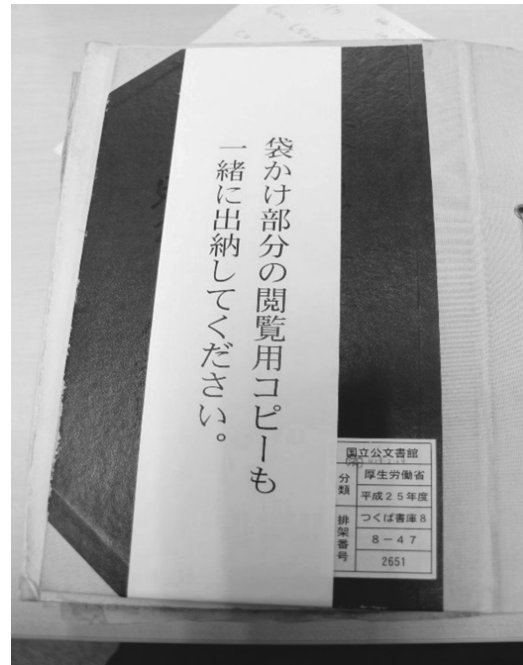 袋かけ部分の閲覧用コピーも
一緒に出納してください。
国立公文書館
分類
厚生労働省
平成25年度
排架番号
つくば書庫8
8-47
2651